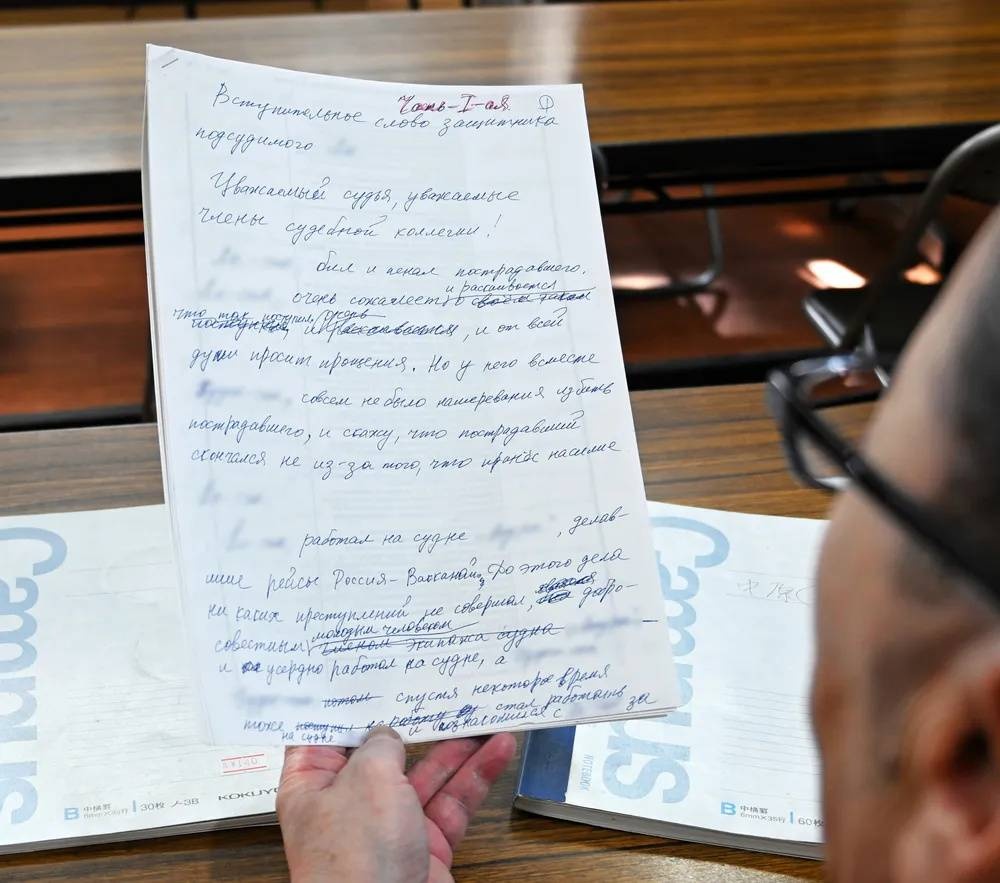 Часть-I-ая ①
Вступительное слово защитника
подсудимого
Уважаемый судья, уважаемые
члены судебной коллегии!
бил и пенал пострадавшего.
и раскаивается
очень сожалеет, о своём таком
что так поступил, очень
поступке, и раскаивается, и от всей
души просит прощения. Но у него вместе
совсем не было намерения избить
пострадавшего, и скажу, что пострадавший
скончался не из-за того, что принёс насилие
работал на судне , делав-
шие рейсы Россия-Вакканай. До этого дела
ни каких преступлений не совершал, добро-
молодым человеком
совестным членом экипажа судна
и усердно работал на судне, а
потом спустя некоторое время
тоже на работу стал работать за
на судне и познакомился с
Campus
B 中横罫 6mm×35行 30枚 ノ-3B KOKUYO
Campus
NOTEBOOK
B 中横罫 6mm×35行 60枚